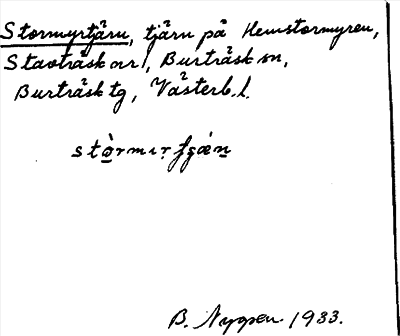 Stormyrtjärn, tjärn på Hemstormyren,
Stavträsk onr, Burträsk sn,
Burträsk tg, Västerb. l.
B. Nygren 1933.